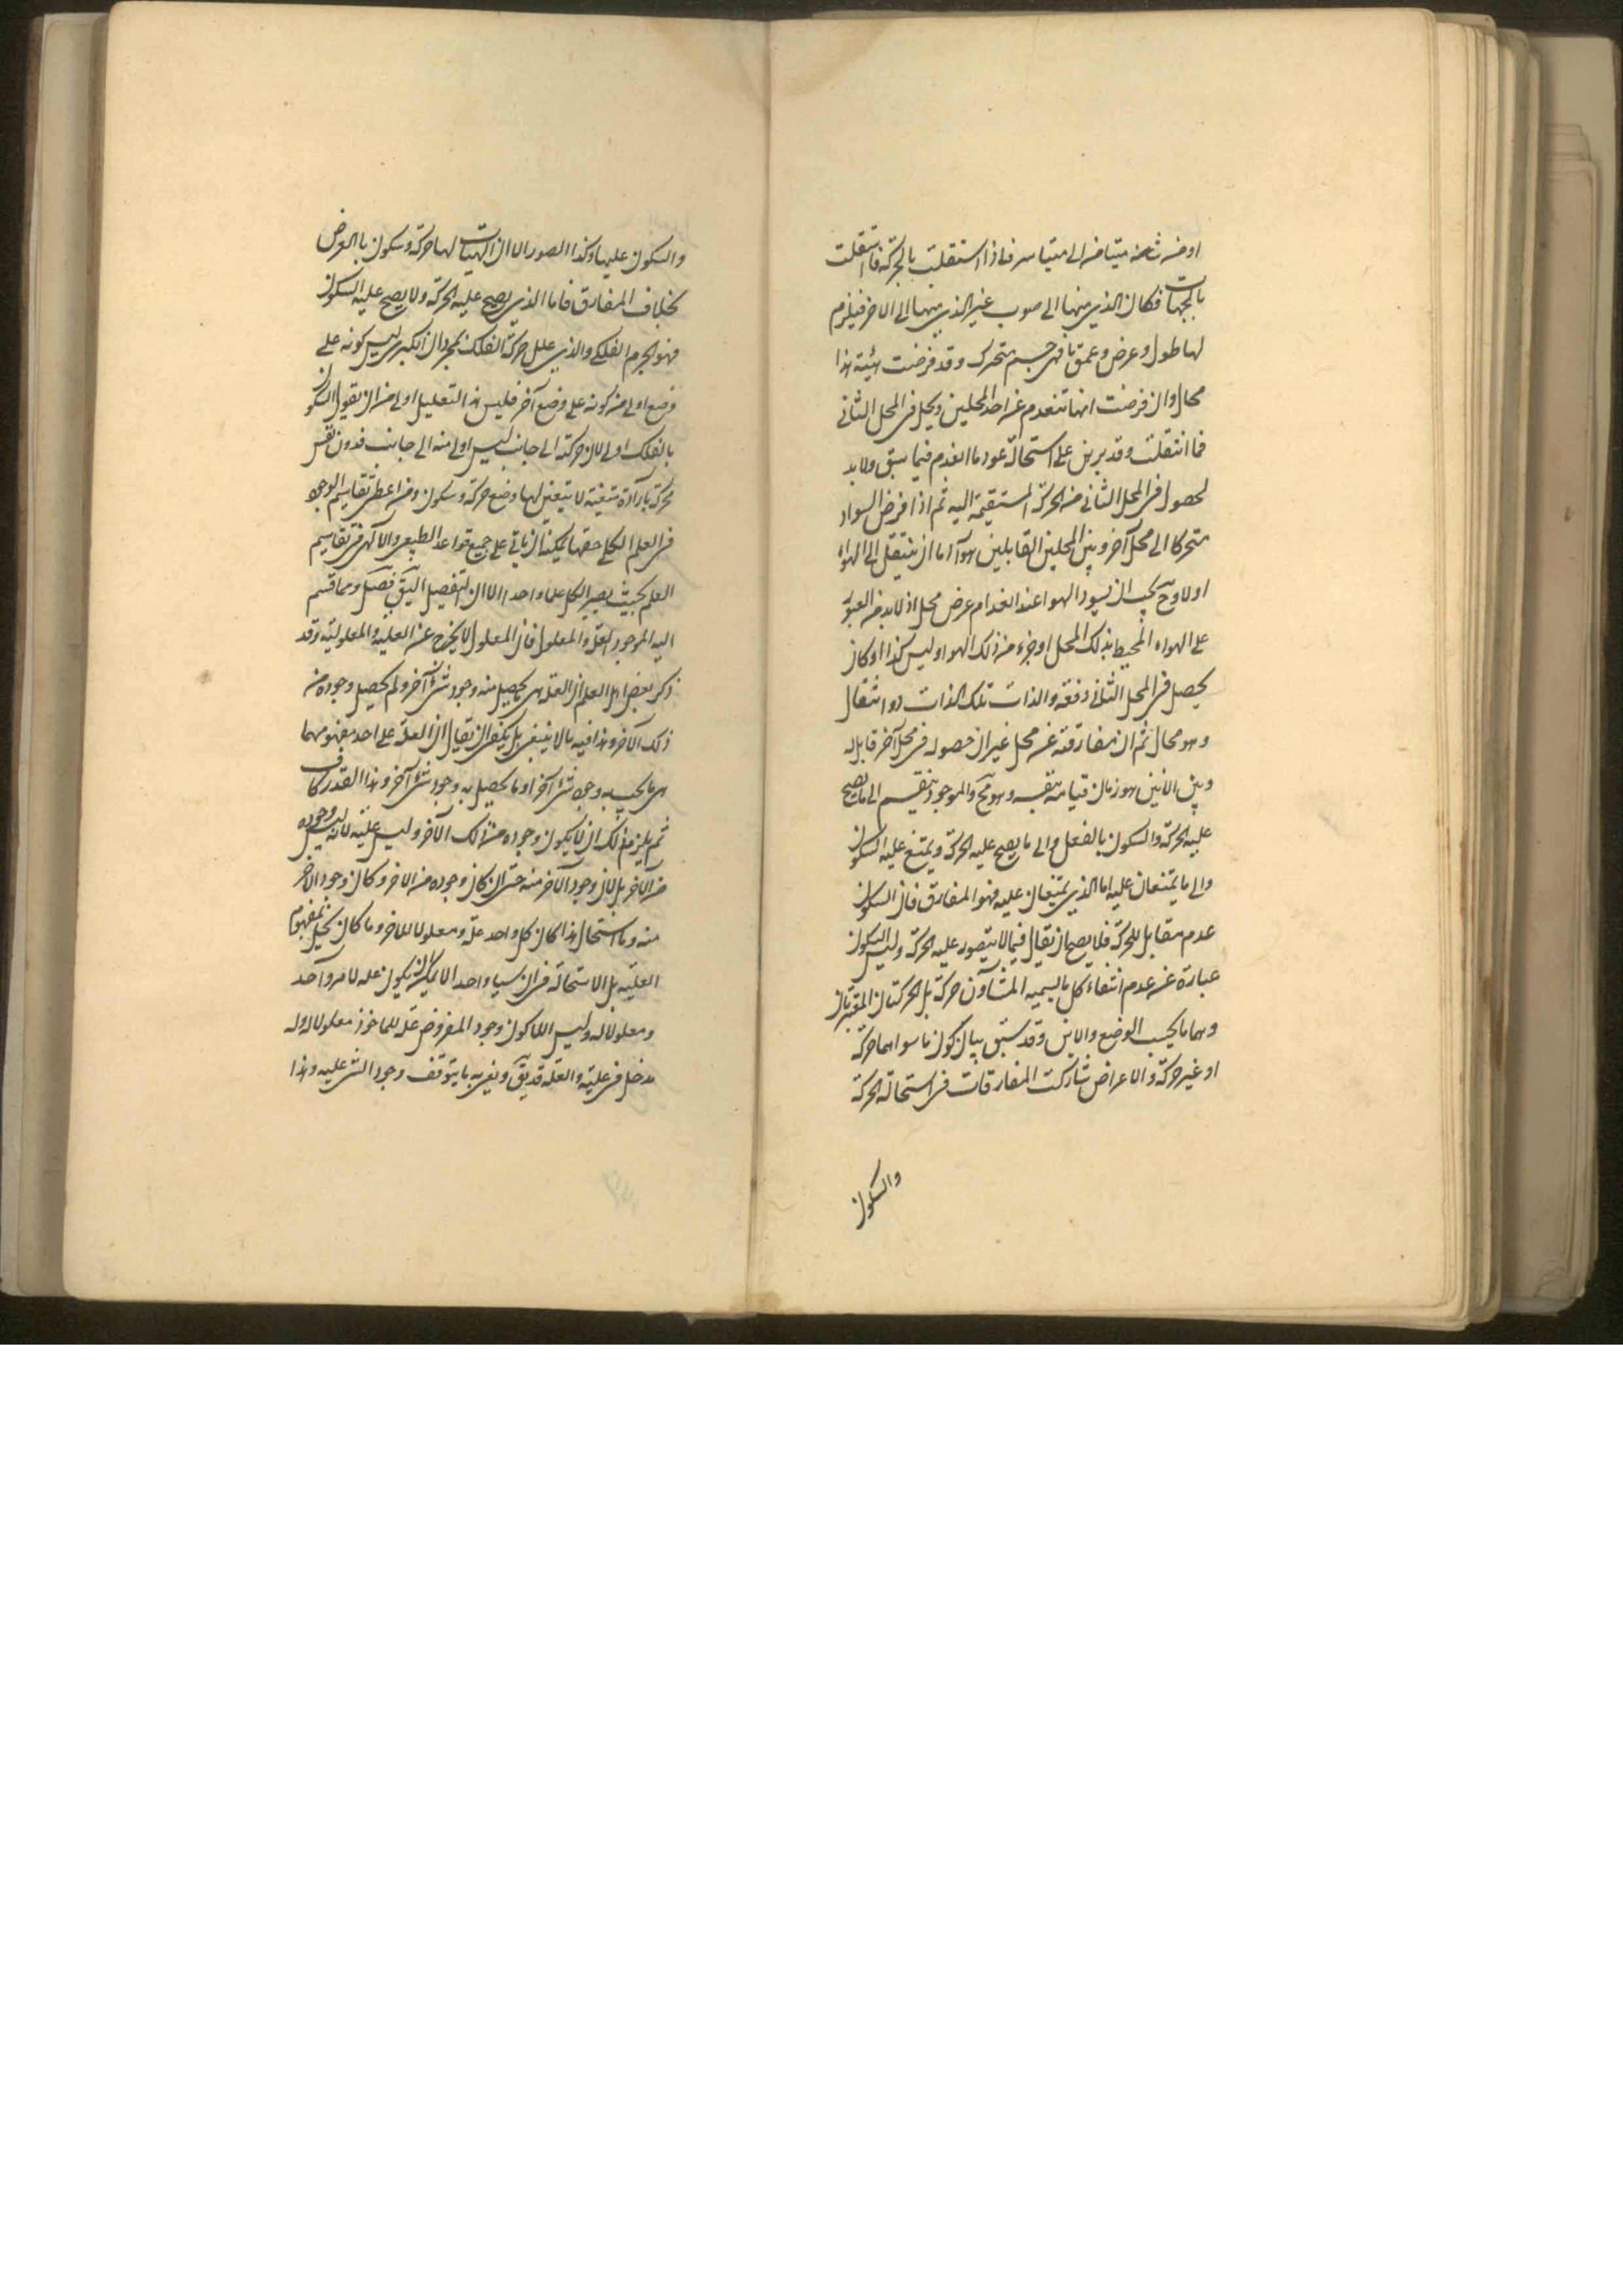 او من شامة متيامنة الى متياسر فاذا استقلت بالحركة فاستقلت
بالجهات فكان الذي منها الى صوب غير الذي منها الى الاخر فيلزم
لها طول وعرض وعمق فهي جسم متحرك وقد فرضت هيئة هذا
محال وان فرضت انها تنعدم عن احد المحلين ويحل في المحل الثاني
فما انتقلت وقد برهن على استحالة عود ما انعدم فيما سبق ولا بد
لحصول في المحل الثاني من الحركة المستقيمة اليه ثم اذا فرض السواد
متحركا الى محل آخر وبين المحلين القابلين هوآ اما ان ينتقل الى الهواء
اولا وح يجب ان يسود الهوا عند انعدام عرض محل اذ لا بد من العبور
على الهواء المحيط بذلك المحل او جزء من ذلك الهوا وليس كذا او كان
يحصل في المحل الثاني دفعة والذات تلك الذات دو انتقال
وهو محال ثم ان مفارقته عن محل غير ان حصوله في محل آخر قابل له
وبين الانين هو زمان قيامه بنفسه وهو مح والموجود ينقسم الى ما يصح
عليه الحركة والسكون بالفعل والى ما يصح عليه الحركة ويمتنع عليه السكون
والى ما يمتنعان عليه اما الذي يمتنعان عليه فهو المفارق فان السكون
عدم مقابل للحركة فلا يصح ان يقال فيما لا يتصور عليه الحركة وليس السكون
عبارة عن عدم انتفاء كل ما يسميه المشاؤن حركة بل الحركتان المعتبرتان
وهما ما يحسب الوضع والاين وقد سبق بيان كون ما سواهما حركة
او غير حركة والاعراض شاركت المفارقات في استحالة الحركة
والسكون
والسكون عليها وكذا الصور الا ان الهيات لها حركة وسكون بالعرض
بخلاف المفارق فاما الذي يصح عليه الحركة ولا يصح عليه السكون
فهو الجرم الفلكي والذي علل حركة الفلك بمجرد ان الكبرى ليس كونه على
وضع اولى من كونه على وضع آخر فليس هذا التعليل اولى من ان يقول السكون
بالفلك اولى لان حركته الى جانب ليس اولى منه الى جانب فدون نفس
محركة بارادة متفننة لا يتعين لها وضع حركة وسكون ومن اعظم تقاسيم الوجود
في العلم الكلي حقها يمكنه ان ياتي على جميع قواعد الطبيعي والالهي في تقاسيم
العلم بحيث يصير الكل علما واحدا الا ان التفصيل اليق فصل ومما قسم
اليه الموجود العلة والمعلول فان المعلول لا يخرج عن العلية والمعلولية وقد
ذكر بعض اهل العلم ان العلة هي ما يحصل منه وجود شئ آخر ولم يحصل وجوده من
ذلك الآخر وهذا فيه ما لا ينبغي بل يكفي ان يقال ان العلة على احد مفهومهما
هي ما يجب به وجود شئ آخر او ما يحصل به وجود شئ آخر وهذا القدر كاف
ثم يلزم من ذلك ان لا يكون وجوده من ذلك الآخر وليس علية لانه ليس وجوده
من الآخر بل لان وجود الآخر منه حتى ان كان وجوده من الاخر وكان وجود الاخر
منه وما استحال هذا كان كل واحد علة ومعلولا للاخر وما كان يحيل مفهوم
العلية بل الاستحالة في ان سيا واحدا لا يمكن ان يكون علة لامر واحد
ومعلولا له وليس اللاكون وجود المفروض علة للماخوذ معلولا له وله
مدخل في علية والعلة قد يق ويعنى به ما يتوقف وجود الشئ عليه وهذا